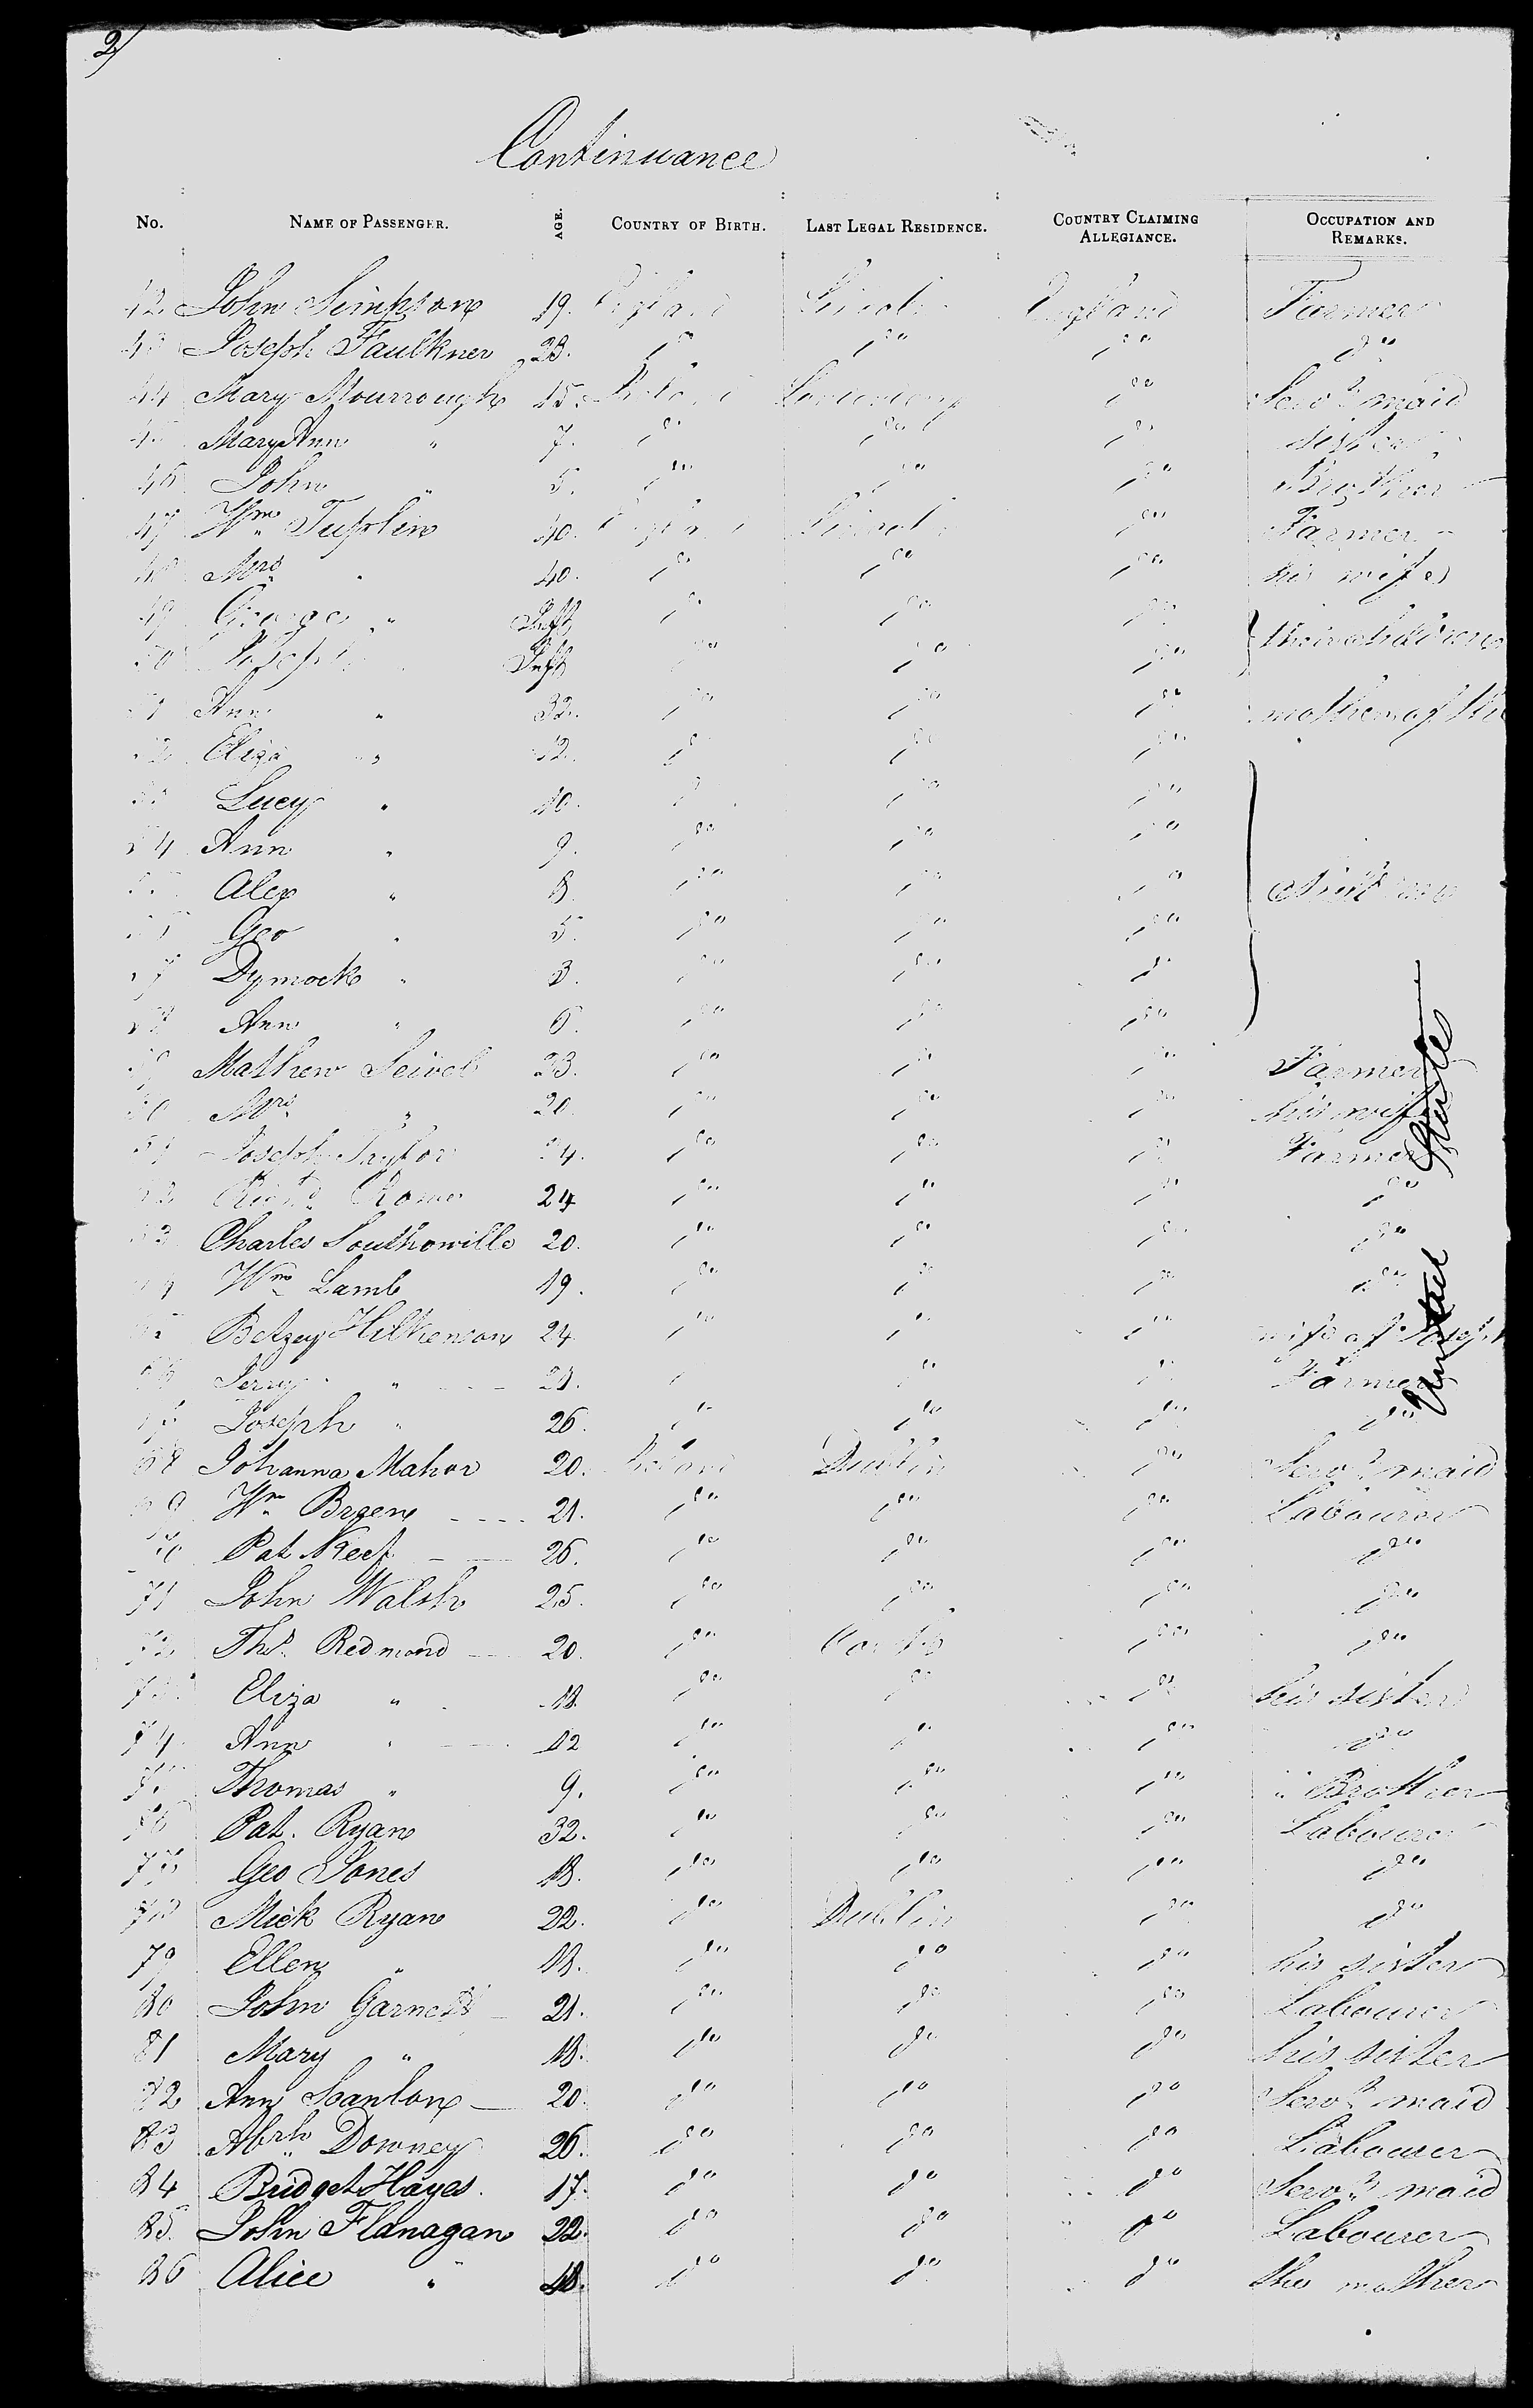 2)
Continuance
No. NAME OF PASSENGER. AGE. COUNTRY OF BIRTH. LAST LEGAL RESIDENCE. COUNTRY CLAIMING ALLEGIANCE. OCCUPATION AND REMARKS.
42 John Simpson 19. England Lincoln England Farmer
43 Joseph Faulkner 23. do do do do
44 Mary Mourrough 15. Ireland do Servt maid
45 Mary Ann " 7. do do do sister
46 John " 5. do do do Brother
47 Wm Tuplin 40. England Lincoln do Farmer
48 Mrs " 40. do do do his wife
49 George " Inft do do do } their children
50 Joseph Inft do do do
51 Ann " 32. do do do mother of the
52 Eliza " 12. do do do
53 Lucy " 10. do do do
54 Ann " 9. do do do
55 Alex " 8. do do do children
56 Geo " 5. do do do
57 Dymock " 3. do do do
58 Ann " 6. do do do
59 Mathew 23. do do do Farmer
60 Mrs " 20. do do do his wife
61 Joseph Taylor 24. do do do Farmer
62 24 do do do do
63 Charles 20. do do do do
64 Wm Lamb 19. do do do do
65 Betzey Hilkenson 24 do do do wife of Joseph
66 Jerry " 21. do do do Farmer
67 Joseph " 26. do do do do
68 Johanna Mahor 20. Ireland Dublin do Servt maid
69 Wm Breen 21. do do do Labourer
70 Pat Keef 26. do do do do
71 John Walsh 25. do do do do
72 Ths. Redmond 20. do do do
73 Eliza " 18. do do do his sister
74 Ann " 12 do do do do
75 Thomas " 9. do do do " Brother
76 Pat. Ryan 32. do do do Labourer
77 Geo Jones 18. do do do do
78 Mick Ryan 22. do Dublin do do
79 Ellen " 18. do do do his sister
80 John Garnett 21. do do do Labourer
81 Mary " 18. do do do his sister
82 Ann Scanlon 20. do do do Servt maid
83 Abrh Downey 26. do do do Labourer
84 Bridget Hayes. 17. do do do Servt maid
85. John Flanagan 22. do do do Labourer
86 Alice " 48. do do do the mother
United States